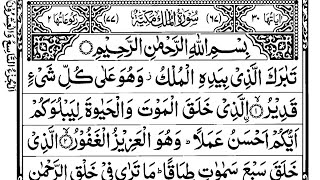 اٰيَاتُهَا ٣٠ (٦٧) سُوْرَةُ الْمُلْكِ مَكِّيَّةٌ (٧٧) رُكُوْعَاتُهَا ٢
بِسْمِ اللّٰهِ الرَّحْمٰنِ الرَّحِيْمِ
تَبٰرَكَ الَّذِيْ بِيَدِهِ الْمُلْكُ ز وَهُوَ عَلٰى كُلِّ شَيْءٍ
قَدِيْرُ ۙ۝١ الَّذِيْ خَلَقَ الْمَوْتَ وَالْحَيٰوةَ لِيَبْلُوَكُمْ
اَيُّكُمْ اَحْسَنُ عَمَلًا ؕ وَهُوَ الْعَزِيْزُ الْغَفُوْرُ ۙ۝٢ الَّذِيْ
خَلَقَ سَبْعَ سَمٰوٰتٍ طِبَاقًا ؕ مَا تَرٰى فِيْ خَلْقِ الرَّحْمٰنِ